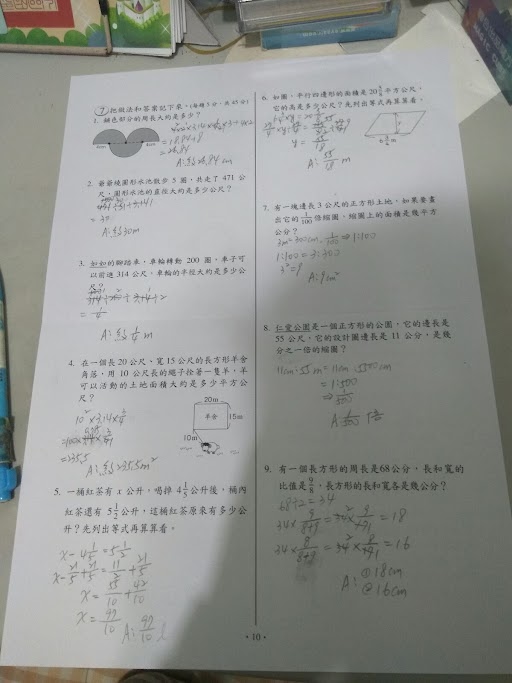 ⑦ 把做法和答案記下來。(每題5分,共45分)
1. 鋪色部分的周長大約是多少?
4cm
4cm
= 18.84+8
= 26.84
A:約26.84 cm
2. 爺爺繞圓形水池散步 5 圈,共走了 471 公
尺,圓形水池的直徑大約是多少公尺?
= 30
A:約30m
3. 如如的腳踏車,車輪轉動 200 圈,車子可
以前進 314 公尺,車輪的半徑大約是多少公
尺?
= 1/4
A:約 1/4 m
4. 在一個長 20 公尺、寬 15 公尺的長方形羊舍
角落,用 10 公尺長的繩子拴著一隻羊,羊
可以活動的土地面積大約是多少平方公
尺?
20m
羊舍
15m
10m
=235.5
A:約235.5m²
5. 一桶紅茶有 x 公升,喝掉 4 1/5 公升後,桶內
紅茶還有 5 1/2 公升,這桶紅茶原來有多少公
升?先列出等式再算算看。
x - 4 1/5 = 5 1/2
x - 21/5 + 21/5 = 11/2 + 21/5
x = 55/10 + 42/10
x = 97/10
A: 97/10 l
6. 如圖,平行四邊形的面積是20 5/8 平方公尺,
它的高是多少公尺?先列出等式再算算看。
y = 55/18
A: 55/18 m
7. 有一塊邊長 3 公尺的正方形土地,如果要畫
出它的 1/100 倍縮圖,縮圖上的面積是幾平方
公分?
3m=300cm, 1/100 ⇒ 1:100
1:100 = 3:300
3²=9
A:9cm²
8. 仁愛公園是一個正方形的公園,它的邊長是
55 公尺,它的設計圖邊長是 11 公分,是幾
分之一倍的縮圖?
11cm:55m = 11cm:5500cm
= 1:500
⇒ 1/500
A: 1/500
9. 有一個長方形的周長是68公分,長和寬的
比值是 9/8,長方形的長和寬各是幾公分?
68÷2=34
34 × 9/(8+9) = 34² × 9/17₁ = 18
34 × 8/(8+9) = 34² × 8/17₁ = 16
A: ①18cm
②16cm
·10·